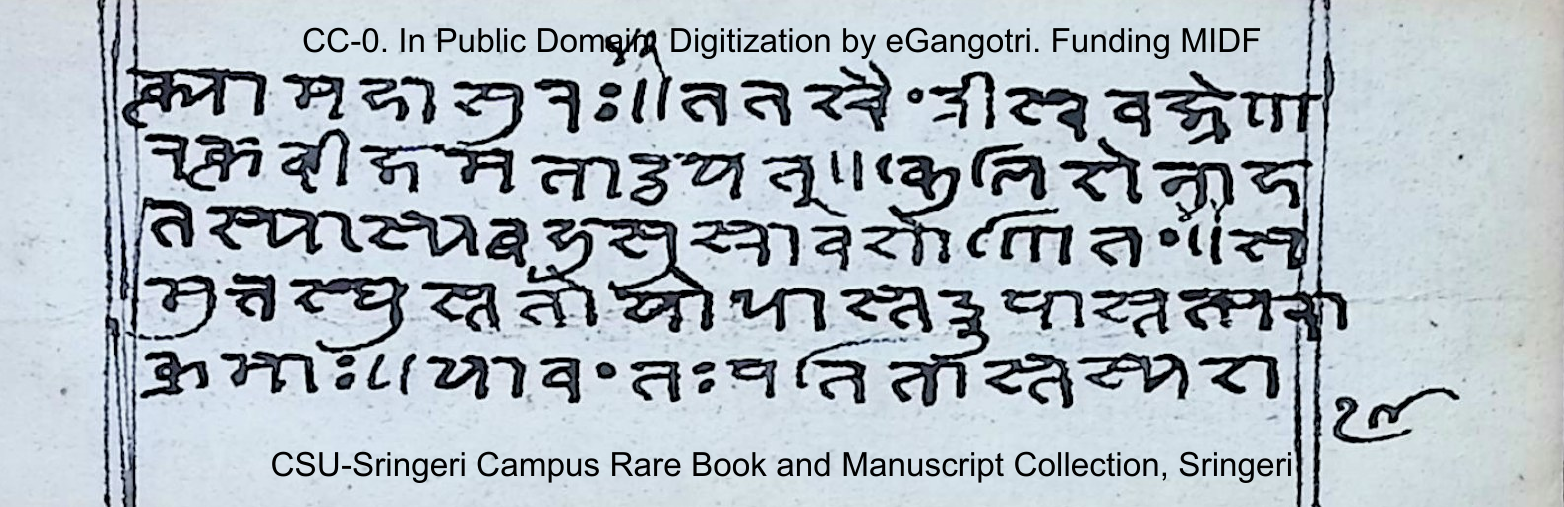 CC-0. In Public Domain Digitization by eGangotri. Funding MIDF
क्त्या महासुरः॥ततश्चैंद्री स्ववज्रेण
रक्तबीजमताडयत्॥कुलिशेनाह
तस्यास्यबहुसुस्राव शोणितं॥स
मुत्तस्थुस्ततो योधास्तद्रुपास्तत्परा
क्रमाः॥यावंतः पतितास्तस्य श
CSU-Sringeri Campus Rare Book and Manuscript Collection, Sringeri